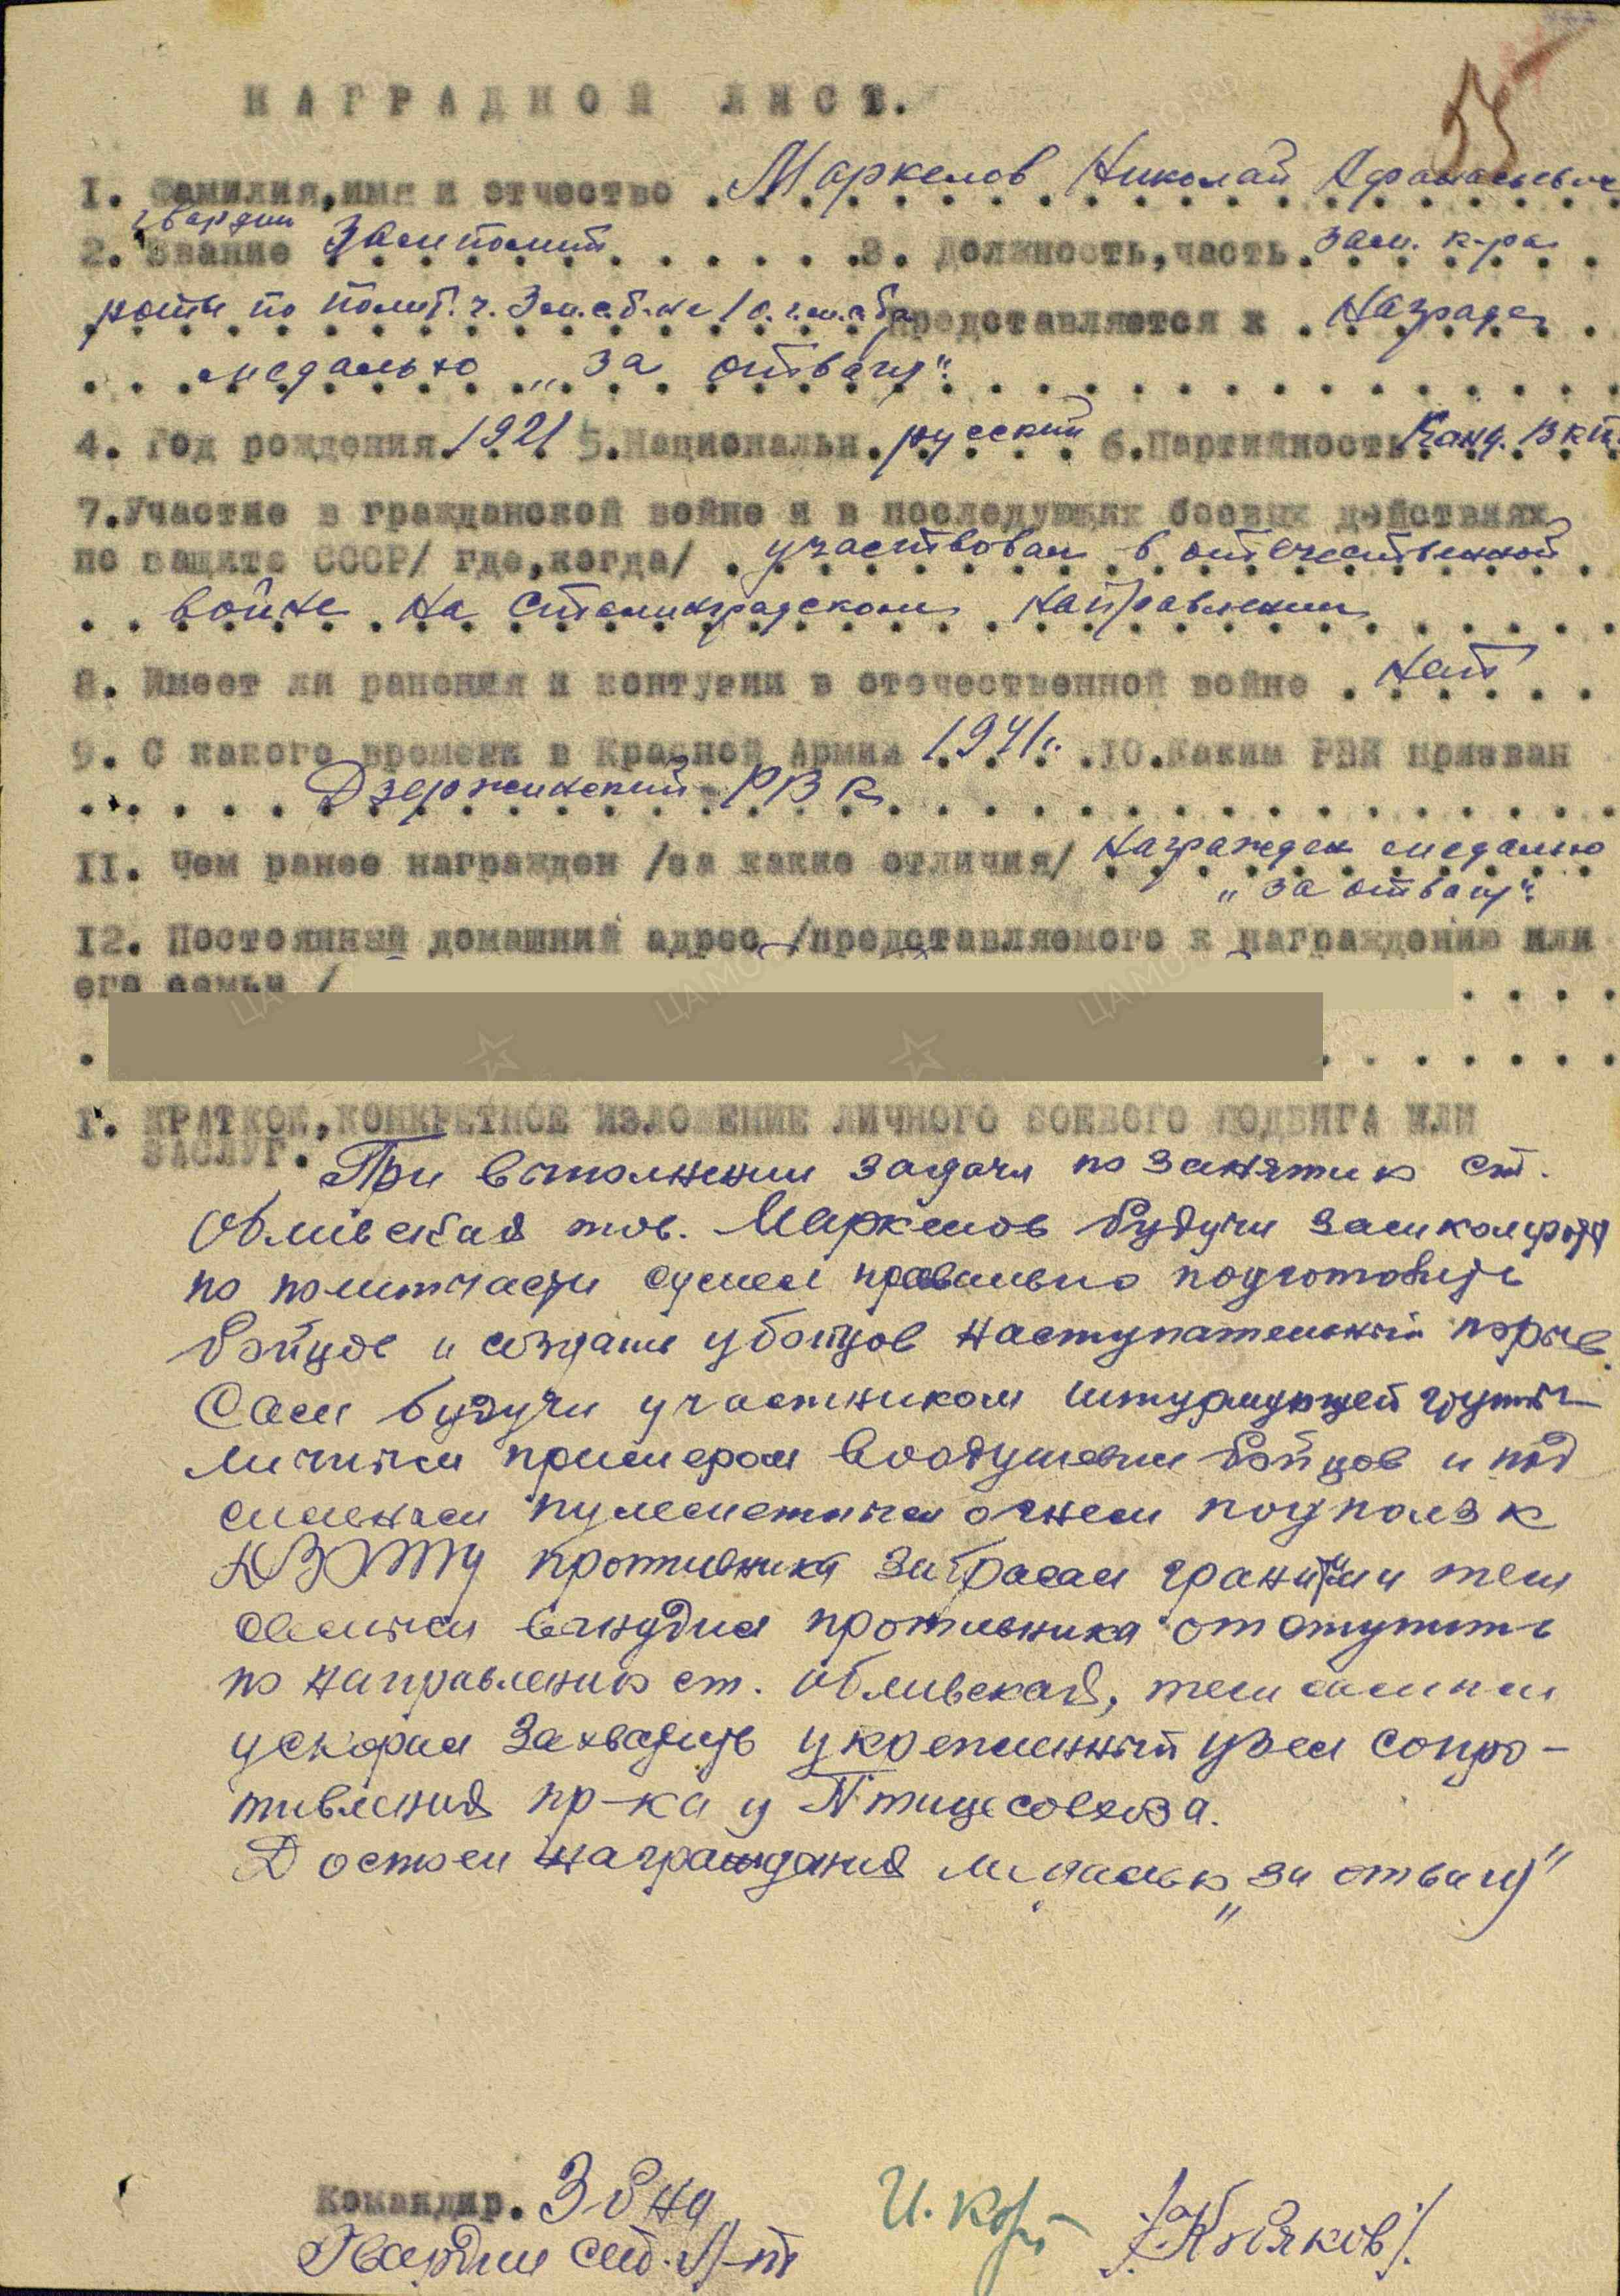 55
НАГРАДНОЙ ЛИСТ.
1. Фамилия,имя и отчество . Маркелов Николай Афанасьевич
гвардии
2. Звание Замполит 3. Должность,часть. зам. к-ра
роты по полит.ч. 3 представляется к . Награде
медалью „за отвагу".
4. Год рождения.1921 5.Национальн.русский 6.Партийность Канд. ВКП.
7.Участие в гражданской войне и в последующих боевых действиях
по защите СССР/ где,когда/ . участвовал в отечественной
войне на Сталинградском направлении
8. Имеет ли ранения и контузии в отечественной войне . Нет
9. С какого времени в Красной Армии 1941г. .10.Каким РВК призван
Дзержинский РВК
11. Чем ранее награжден /за какие отличия/ Награжден медалью
„за отвагу".
12. Постоянный домашний адрес /представляемого к награждению или
его семьи /
1. КРАТКОЕ,КОНКРЕТНОЕ ИЗЛОЖЕНИЕ ЛИЧНОГО БОЕВОГО ПОДВИГА ИЛИ
ЗАСЛУГ.
При выполнении задачи по занятию ст.
Обливская тов. Маркелов будучи замкомроты
по политчасти сумел правильно подготовить
бойцов и создать у бойцов наступательный порыв.
Сам будучи участником штурмующей группы
личным примером воодушевил бойцов и под
сильным пулеметным огнем подполз к
ДЗОТу противника забросал гранатами тем
самым вынудил противника отступить
по направлению ст. Обливская, тем самым
ускорил захватить укрепленный узел сопро-
тивления пр-ка у Птицесовхоза.
Достоин награждения медалью „за отвагу"
Командир. 3 б-на
Гвардии Ст. Л-т /Кизяков/.